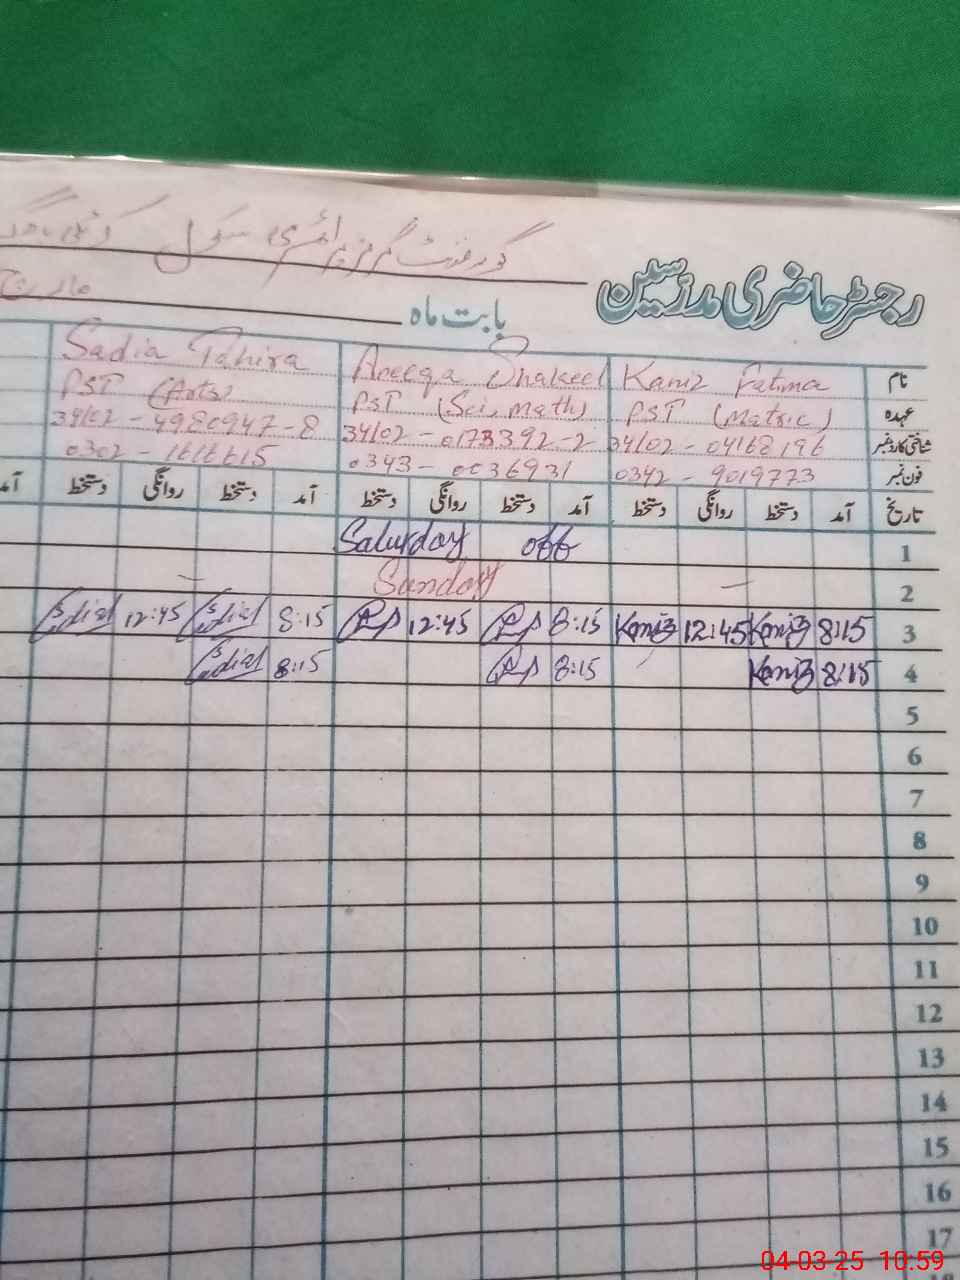 گورنمنٹ گرلز پرائمری سکول
رجسٹر حاضری مدرسین
بابت ماہ مارچ
نام Kaniz Fatima Aneeqa Shakeel Sadia Tahira
عہدہ PST (Matric) PST (Sci, Math) PST (Arts)
شناختی کارڈ نمبر 34102-04168196 34102-0173392-2 34102-4980947-8
فون نمبر 0342-9019773 0343-0036931 0302-1616615
تاریخ آمد دستخط روانگی دستخط آمد دستخط روانگی دستخط آمد دستخط روانگی دستخط آمد
1 Saturday off
2 Sunday
3 8:15 Kaniz 12:45 Kaniz 8:15 12:45 8:15 Sadia 12:45 Sadia
4 8:15 Kaniz 8:15 8:15 Sadia
5
6
7
8
9
10
11
12
13
14
15
16
17
04-03-25 10:59